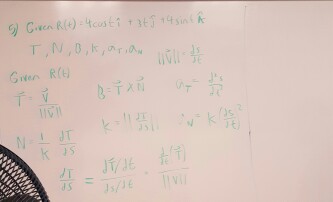 9) Given R(t) = 4cost î + 3t ĵ + 4sint k̂
T, N, B, K, a_T, a_N ||V|| = ds/dt
Given R(t)
T = V/||V|| B = T × N a_T = d²s/dt²
K = ||dT/ds|| a_N = K(ds/dt)²
N = 1/K dT/ds
dT/ds = (dT/dt)/(ds/dt) = d/dt[T]/||V||